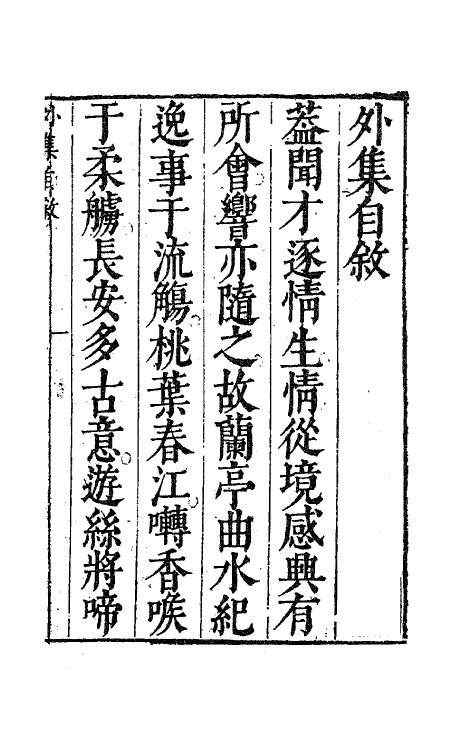 外集自敘
葢聞才逐情生情從境感興有
所會響亦隨之故蘭亭曲水紀
逸事于流觴桃葉春江囀香喉
于柔艣長安多古意遊絲將啼
外集自敘 一